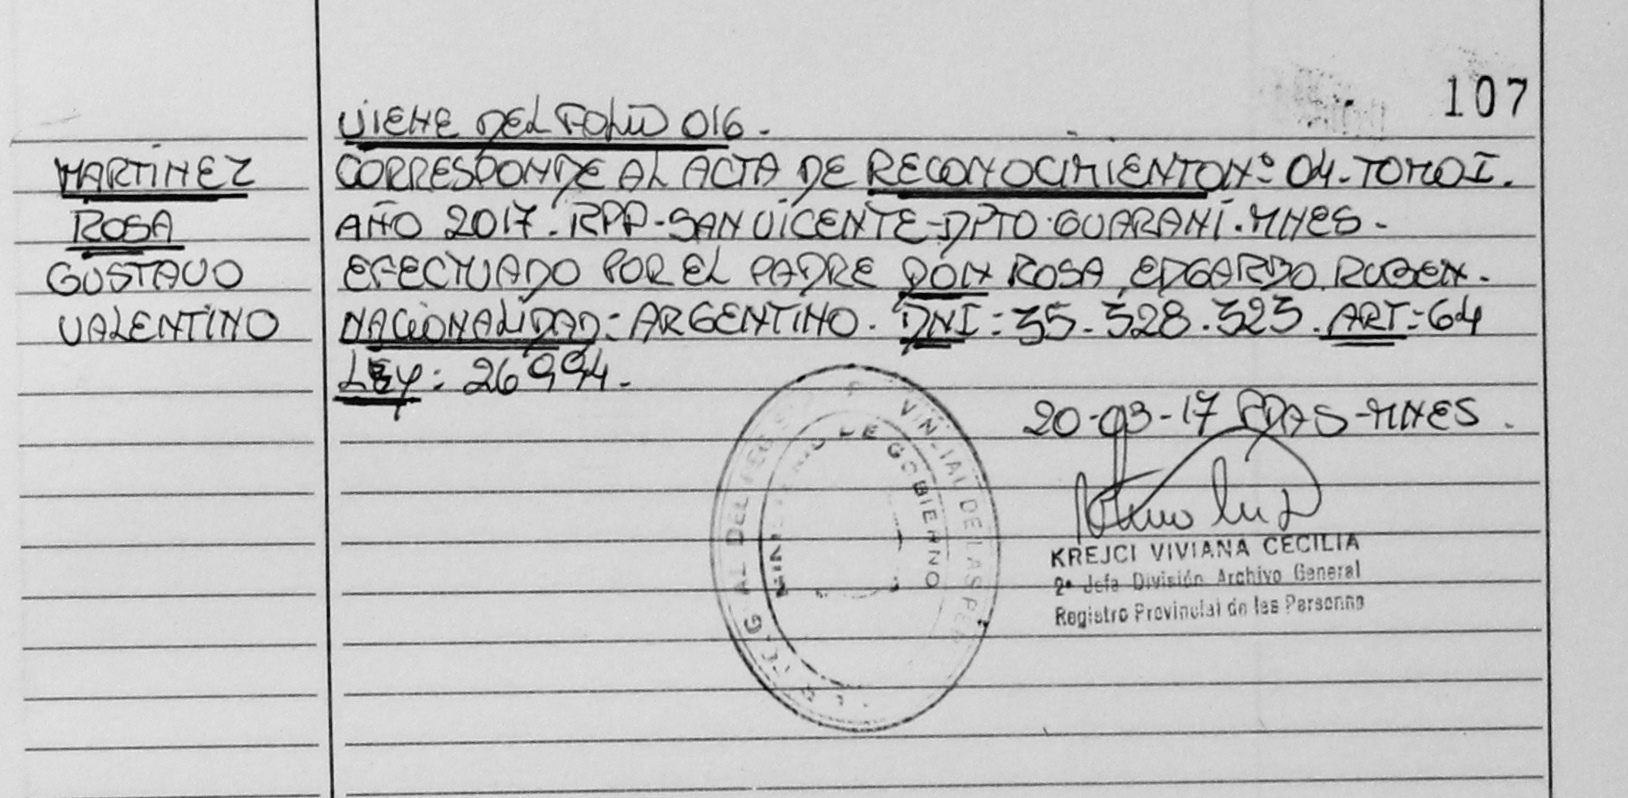 107
VIENE DEL FOLIO 016.
MARTINEZ
ROSA
GUSTAVO
VALENTINO
CORRESPONDE AL ACTA DE RECONOCIMIENTO Nº 04-TOMO I.
AÑO 2017. RPP-SAN VICENTE-DPTO GUARANÍ.MNES-
EFECTUADO POR EL PADRE DON ROSA, EDGARDO RUBEN.
NACIONALIDAD: ARGENTINO. DNI: 35.328.323. ART: 64
LEY: 26994.
20-03-17 PDAS-MNES.
KREJCI VIVIANA CECILIA
2ª Jefa División Archivo General
Registro Provincial de las Personas
DE GOBIERNO